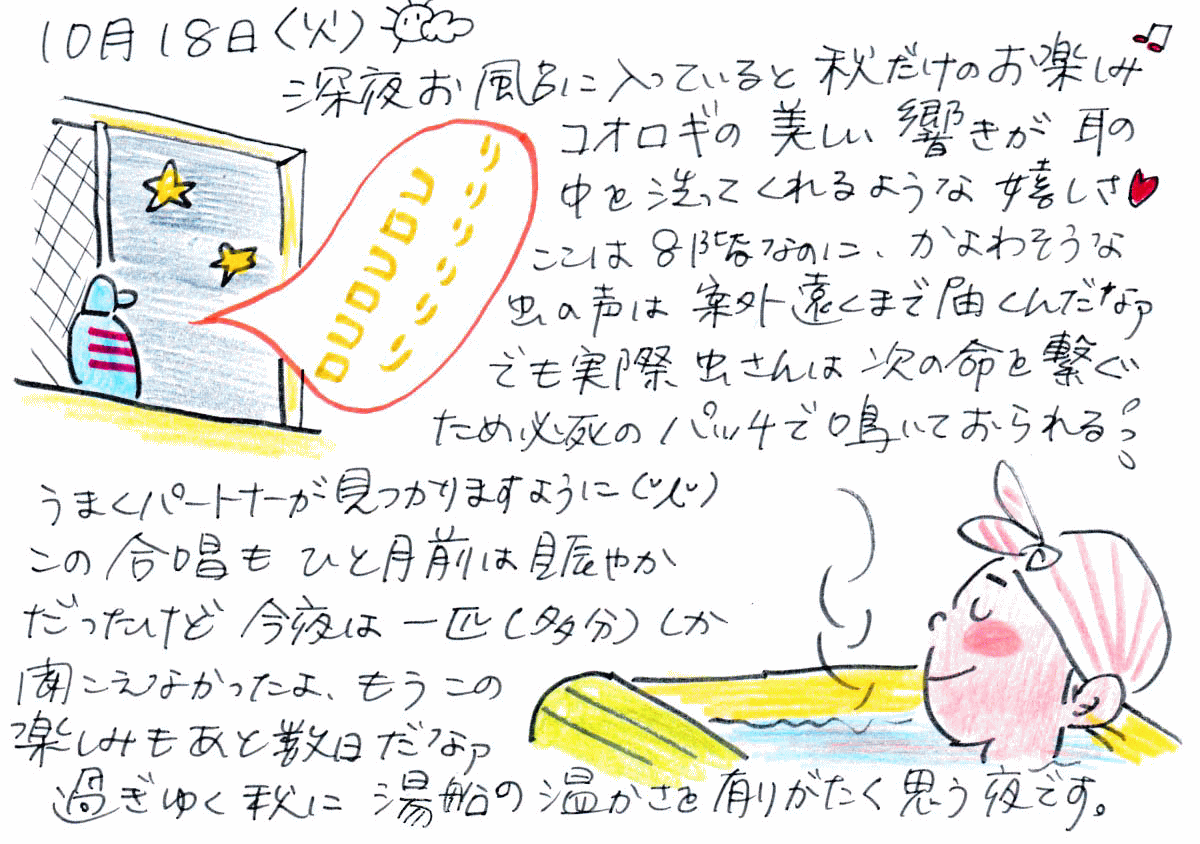 10月18日(火)
深夜お風呂に入っていると 秋だけのお楽しみ♪
コオロギの 美しい 響きが 耳の
中を 洗ってくれるような 嬉しさ♥
ここは 8階なのに、かよわそうな
虫の声は 案外遠くまで届くんだなァ
でも実際 虫さんは 次の命を繋ぐ
ため必死のパッチで鳴いておられる
うまくパートナーが見つかりますように
この 合唱も ひと月前は賑やか
だったけど 今夜は 一匹(多分)しか
聞こえなかったよ、もう この
楽しみも あと数日だなァ
過ぎゆく秋に 湯船の温かさを有りがたく思う夜です。
コロコロコロ
リリリリリリ